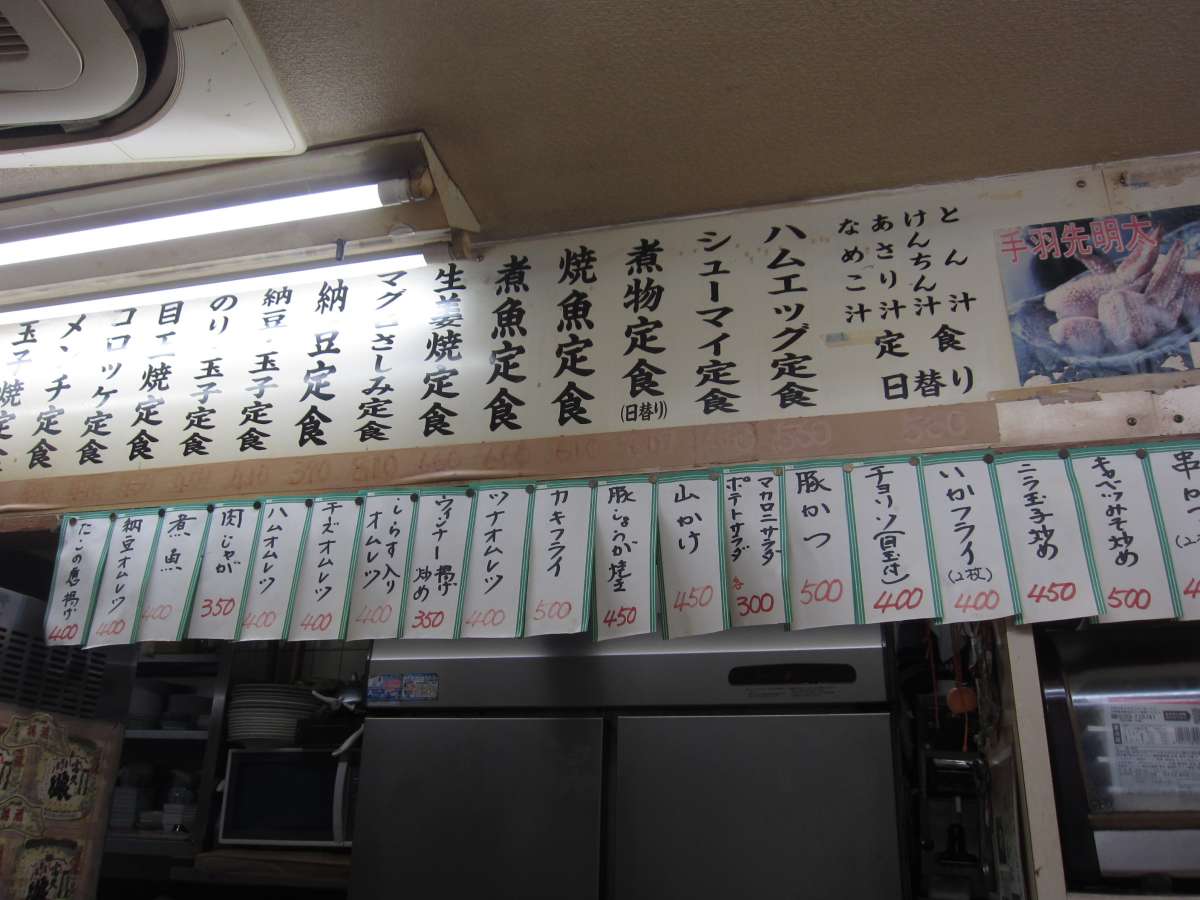 とん汁
けんちん汁
あさり汁
なめこ汁
定食
日替り
ハムエッグ定食
シューマイ定食
煮物定食
(日替り)
焼魚定食
煮魚定食
生姜焼定食
マグロさしみ定食
納豆定食
納豆・玉子定食
のり・玉子定食
目玉焼定食
コロッケ定食
メンチ定食
玉子焼定食
手羽先明太
キャベツみそ炒め
500
ニラ玉子炒め
450
いかフライ
(2枚)
400
チョリソ(目玉付)
400
豚かつ
500
マカロニサラダ
ポテトサラダ
各300
山かけ
450
豚しょうが焼き
450
カキフライ
500
ツナオムレツ
400
ウィンナー揚げ
炒め
350
しらす入り
オムレツ
400
チーズオムレツ
400
ハムオムレツ
400
肉じゃが
350
煮魚
400
納豆オムレツ
400
たこの唐揚げ
400